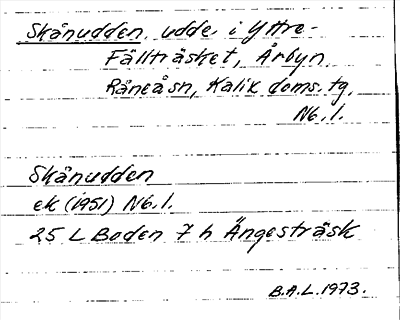 Skånudden, udde i Yttre-
Fällträsket, Årbyn,
Råneåsn, Kalix doms. tg,
Nb. l.
Skånudden
ek (1951) Nb. l.
25 L Boden 7 h Ängesträsk
B.A.L. 1973.